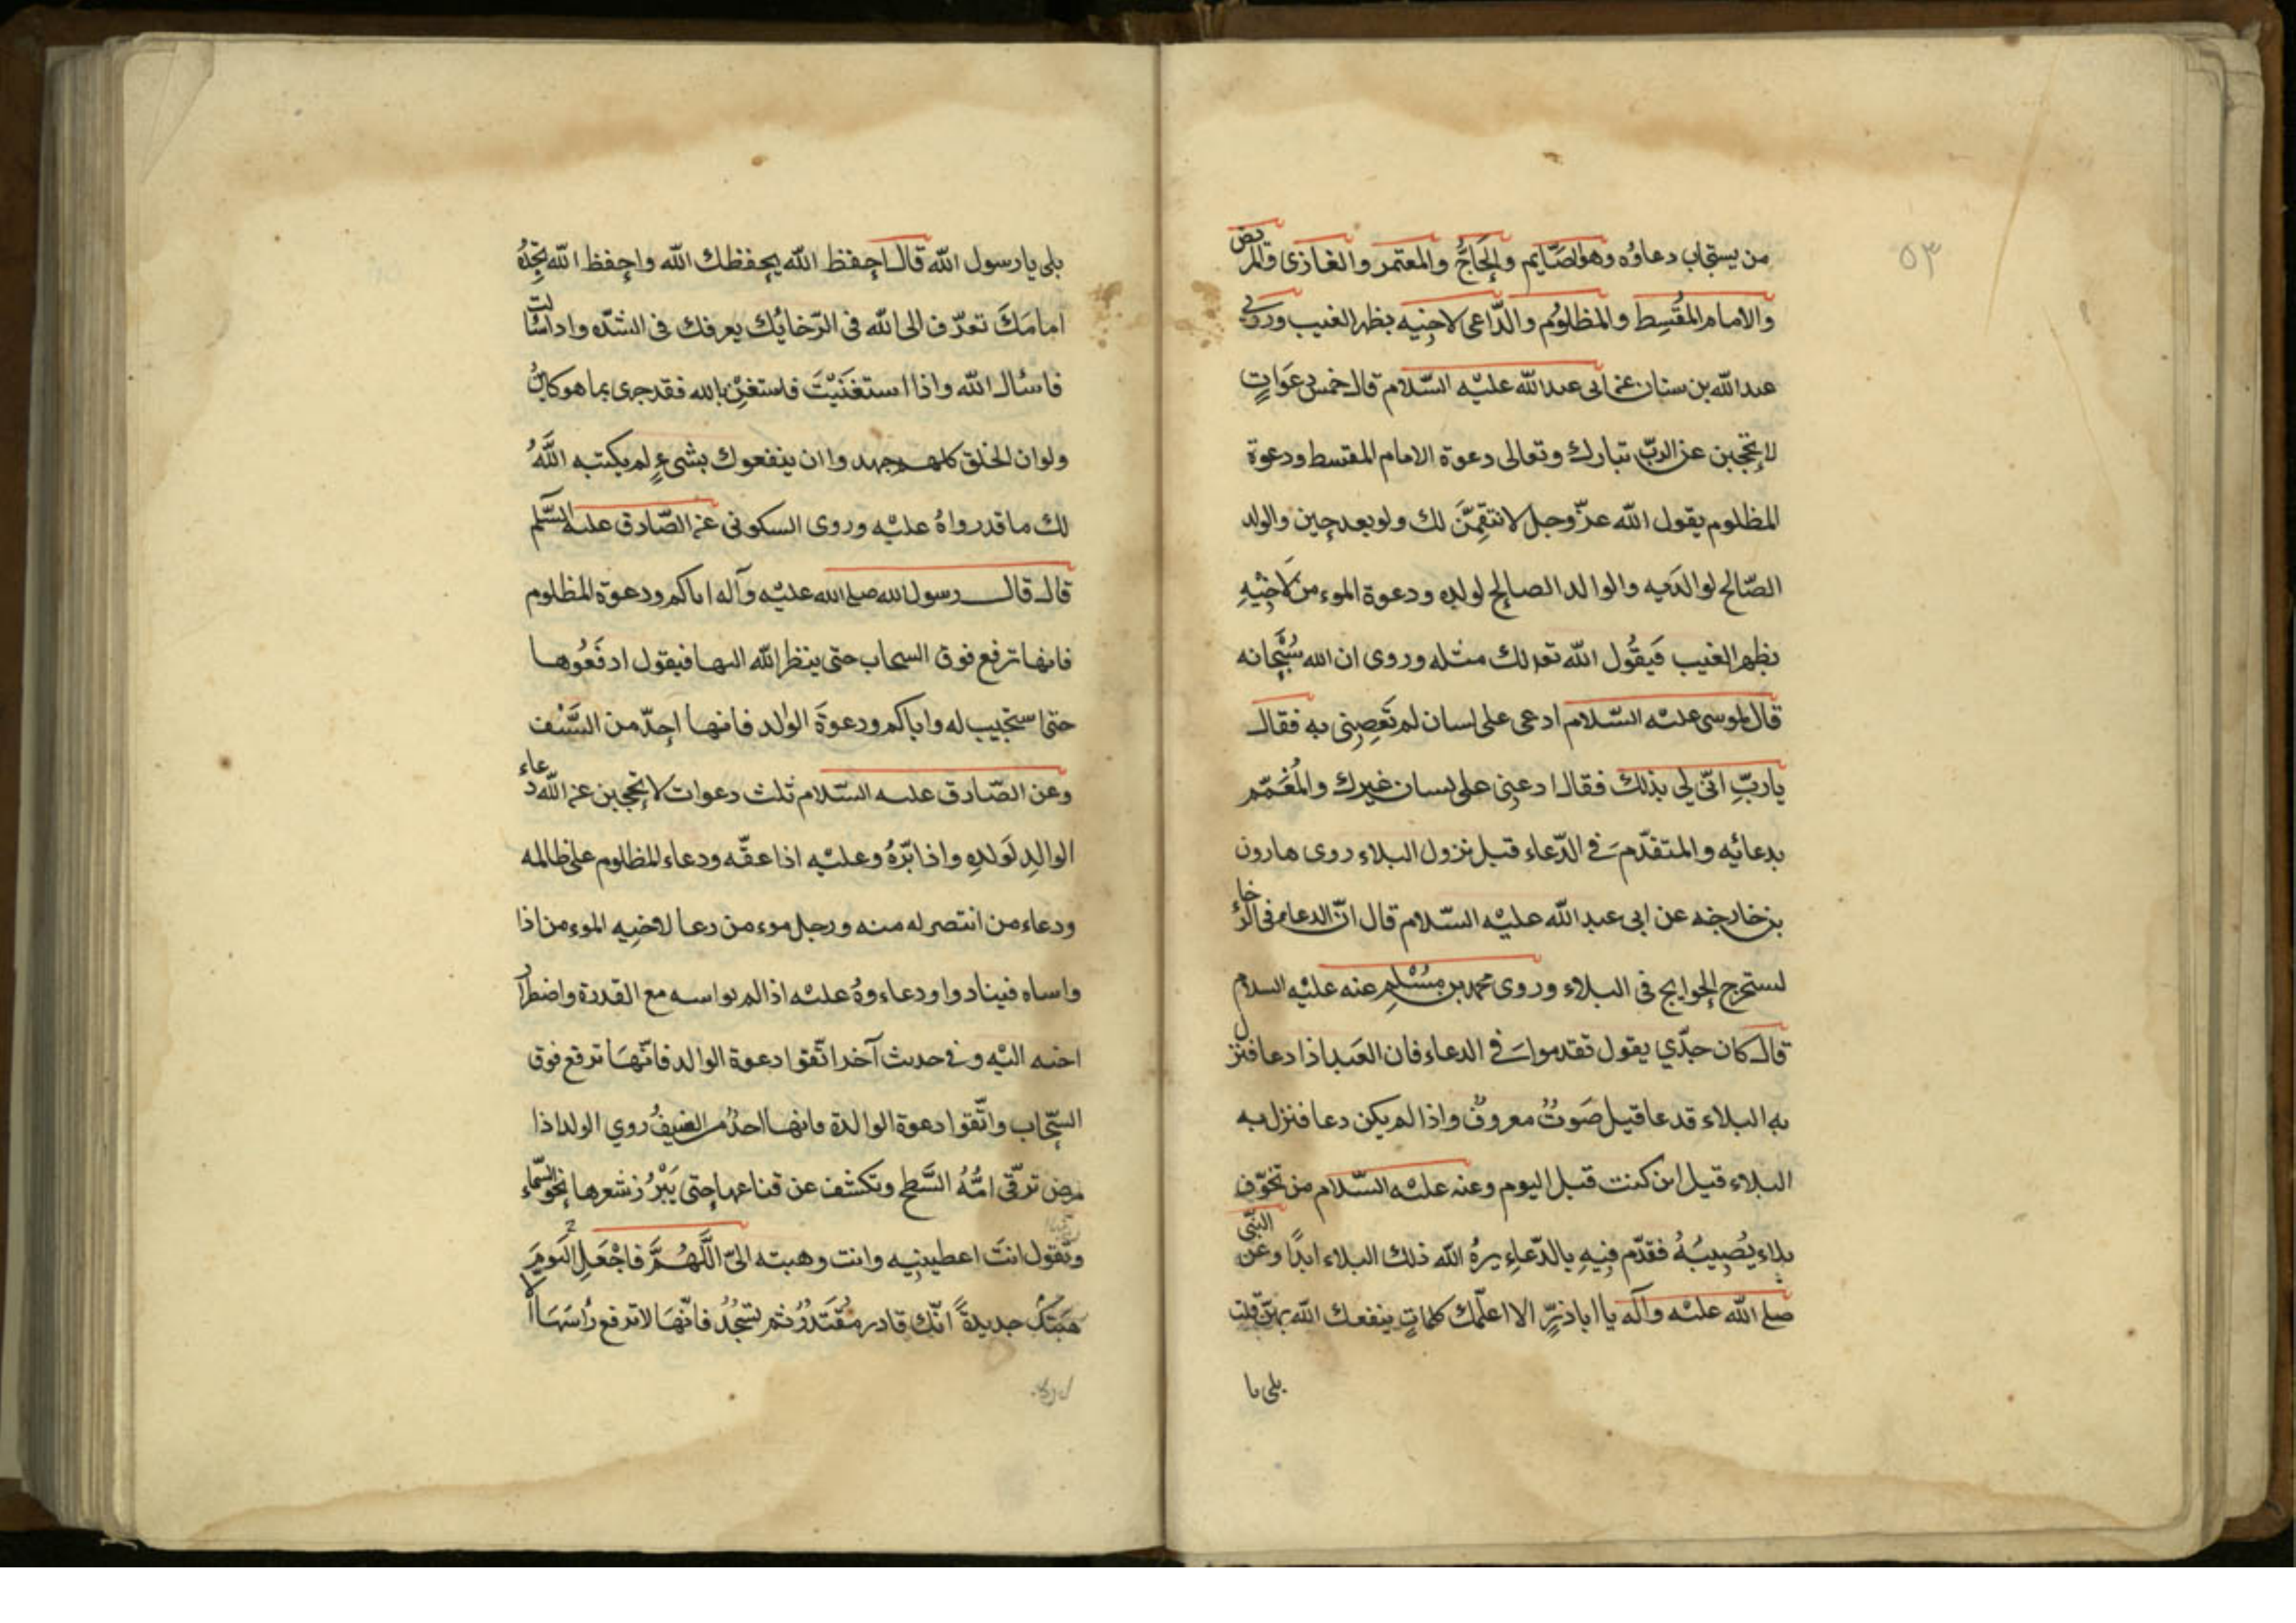 ٥٣
من يستجاب دعاؤه وهو الصّايم والحَاجّ والمعتمر والغازى والمريض
والامام المقُسِط والمظلوُم والدّاعى لاخيه بظهر الغيب وروى
عبد الله بن سنان عن ابى عبد الله عليْه السّلام قال خمس دعَوَاتٍ
لا يحجبن عن الربّ تبارك وتعالى دعوة الامام المقسط ودعوة
المظلوم يقول الله عزّ وجل لانتقِمَّن لك ولو بعد حِين والولد
الصّالح لوالدَيه والوالد الصالح لولدِه ودعوة الموءمن لاخيْهِ
بظهر الغيب فَيقُول الله تعالى لك مثله وروى ان الله سُبْحانه
قال لموسى عليْه السّلام ادعى على لسان لم تَعصِنِى به فقال
ياربِّ انّى لي بذلك فقال ادعنِى على لسان غيرك والمُعَمّم
بدعائيه والمتقدّم فى الدّعاء قبل نزول البلاء روى هارون
بن خارجه عن ابى عبد الله عليْه السّلام قال انّ الدعاء فى الرخاء
لستخرج الحوايج فى البلاء وروى محمد بن مُسْلم عنه عليْه السلام
قال كان جدّي يقول تقدموا فى الدعاء فان العَبد اذا دعا فنزل
به البلاء قد عا قيل صَوتُ معروفٌ واذا لم يكن دعا فنزل به
البلاء قيل اين كنت قبل اليوم وعنه عليْه السّلام من تخوّف
بلاء يُصِيبُهُ فقدّم فِيهِ بالدّعاءِ يرهُ الله ذلك البلاء ابدًا وعن النّبى
صلى الله عليْه وآله يا اباذرٍّ الا اعلّمك كلماتٍ ينفعك الله بهنّ قلت
بلى يا
بلى يا رسول الله قال احفظ الله يحفظك الله واحفظ الله تجِدْهُ
امامَكَ تعرّف الى الله فى الرّخايُك يعرفك فى الشدّه واذا سئالت
فاسئال الله واذا استغَنَيْتَ فاستغِنْ بالله فقد جرى بما هو كاين
ولو ان الخلق كلهم جهد وا ان ينفعوك بشىءٍ لم يكتبه اللَّهُ
لك ما قدرواهُ عليْه وروى السكونى عن الصّادق عليه السّلم
قال قال رسول الله صلى الله عليْه وآله اياكم ودعوة المظلوم
فانها ترفع فوق السحاب حتى ينظر الله اليها فيقول ادفَعُوها
حتى استجيب له واياكم ودعوَة الوالد فانها احدّ من السَّيْف
وعن الصّادق عليه السّلام ثلث دعوات لا يحجبن عن الله دعاء
الوالِدِ لوَلدِهِ واذا برّهُ وعليْه اذا عقّه ودعاء المظلوم على ظالمه
ودعاء من انتصر له منه ورجل موءمن دعا لاخيِه الموءمن اذا
واساه فينا دوا ودعاءوهُ عليْه اذا لم يواسه مع القدرة واضطرار
اخيه اليْه وفى حديث آخر اتّقوا دعوة الوالد فانّهَا ترفع فوق
السّحاب واتّقوا دعوة الوالدة فانها احدُ من السَيفُ روي الولد اذا
مرض ترقّى امُّهُ السَّطح وتكشف عن قناعها حتى يَبْرُز شعرها نحو السّماء
وتقول انتَ اعطيتنِيه وانت وهبته الىّ اللَّهُمَّ فاجْعَلِ اليَومَ
هَبتَك جديدةً انّك قادر مُقْتَدُرٌ ثم تسَجُدُ فانّهَا لا ترفع رأسَهَا الا